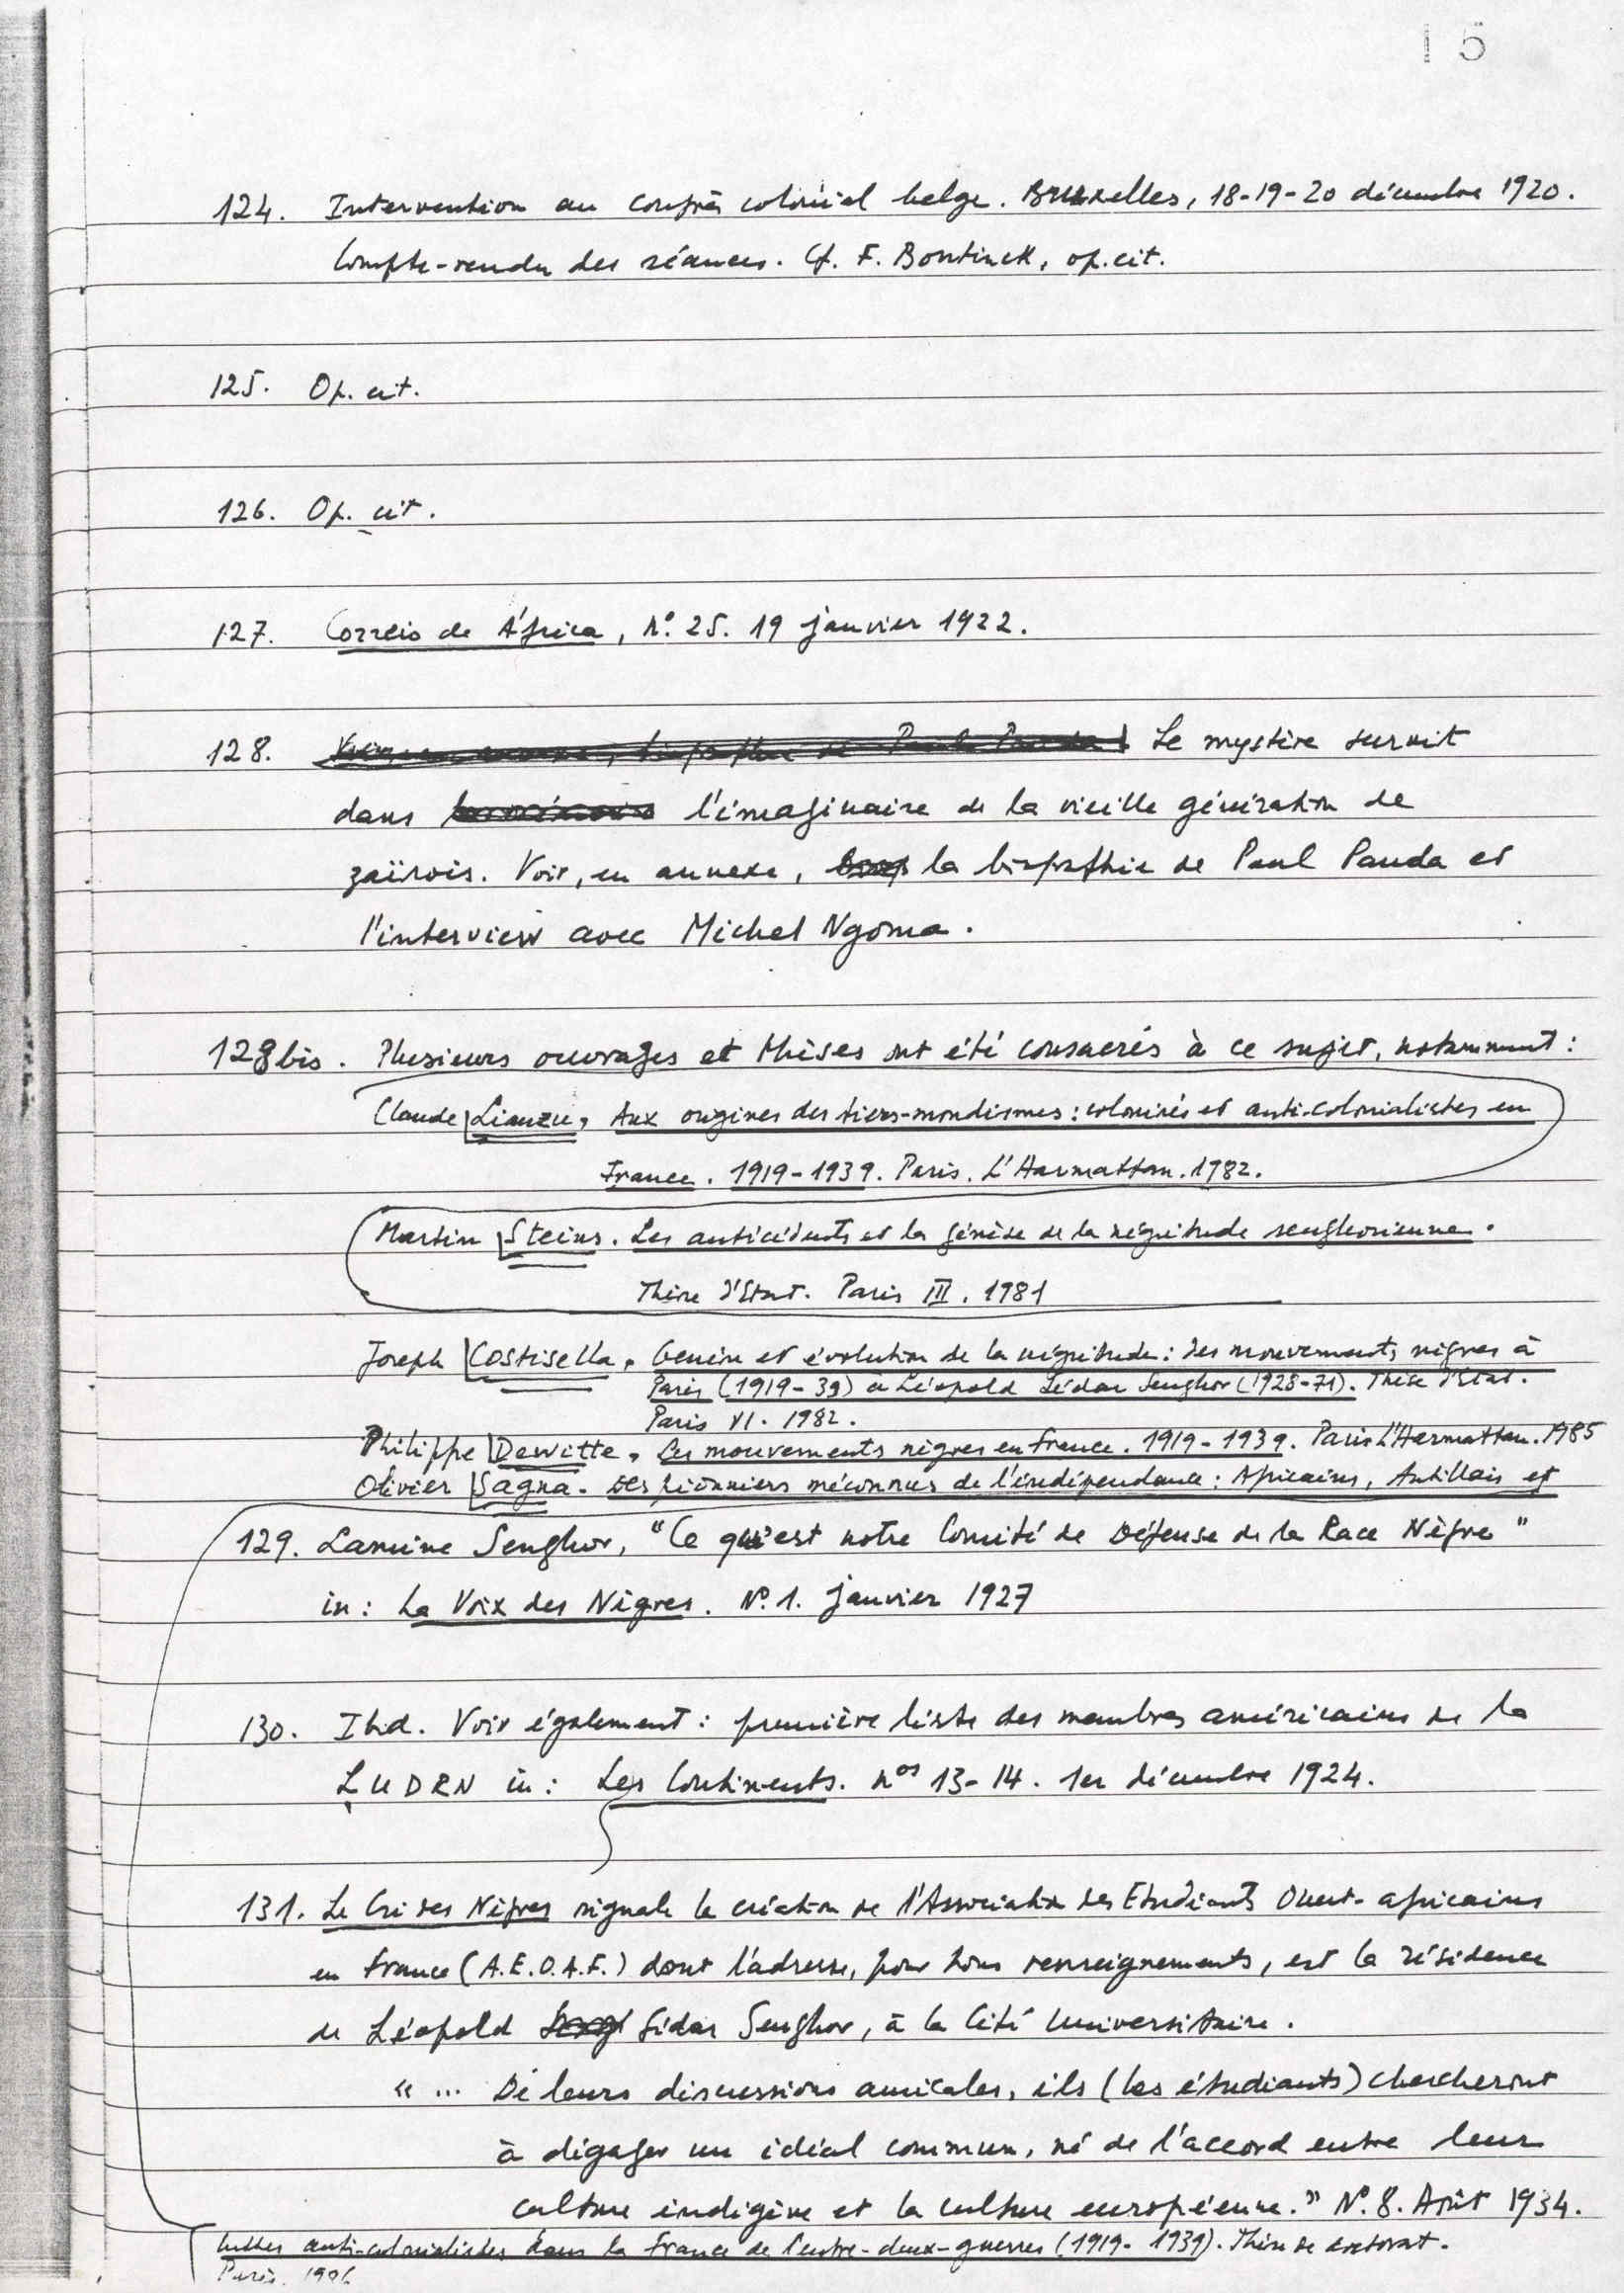 15
124. Intervention au congrès colonial belge. Bruxelles, 18-19-20 décembre 1920.
Compte-rendu des séances. Cf. F. Bontinck, op.cit.
125. Op. cit.
126. Op. cit.
127. Correio de África, N°. 25. 19 janvier 1922.
128. Le mystère survit
dans l'imaginaire de la vieille génération de
zaïrois. Voir, en annexe, la biographie de Paul Panda et
l'interview avec Michel Ngoma.
128bis. Plusieurs ouvrages et thèses ont été consacrés à ce sujet, notamment :
Claude Liauzu, Aux origines des tiers-mondismes : colonisés et anti-colonialistes en
France. 1919-1939. Paris. L'Harmattan. 1982.
Martin Steins. Les antécédents et la genèse de la négritude senghorienne.
Thèse d'Etat. Paris III. 1981
Joseph Costisella, Genèse et évolution de la négritude : des mouvements nègres à
Paris (1919-39) à Léopold Sédar Senghor (1928-71). Thèse d'Etat.
Paris VI. 1982.
Philippe Dewitte, Les mouvements nègres en France. 1919-1939. Paris L'Harmattan. 1985
Olivier Sagna. Des pionniers méconnus de l'indépendance : Africains, Antillais et
129. Lamine Senghor, "Ce qu'est notre Comité de Défense de la Race Nègre"
in : La Voix des Nègres. N°. 1. janvier 1927
130. Ibid. Voir également : première liste des membres américains de la
LUDRN in : Les Continents. nos 13-14. 1er décembre 1924.
131. Le Cri des Nègres signale la création de l'Association des Etudiants Ouest-africains
en France (A.E.O.A.F.) dont l'adresse, pour tous renseignements, est la résidence
de Léopold Sédar Senghor, à la Cité Universitaire.
« ... De leurs discussions amicales, ils (les étudiants) chercheront
à dégager un idéal commun, né de l'accord entre leur
culture indigène et la culture européenne. » N°. 8. Août 1934.
luttes anti-colonialistes dans la France de l'entre-deux-guerres (1919-1939). Thèse de doctorat.
Paris.